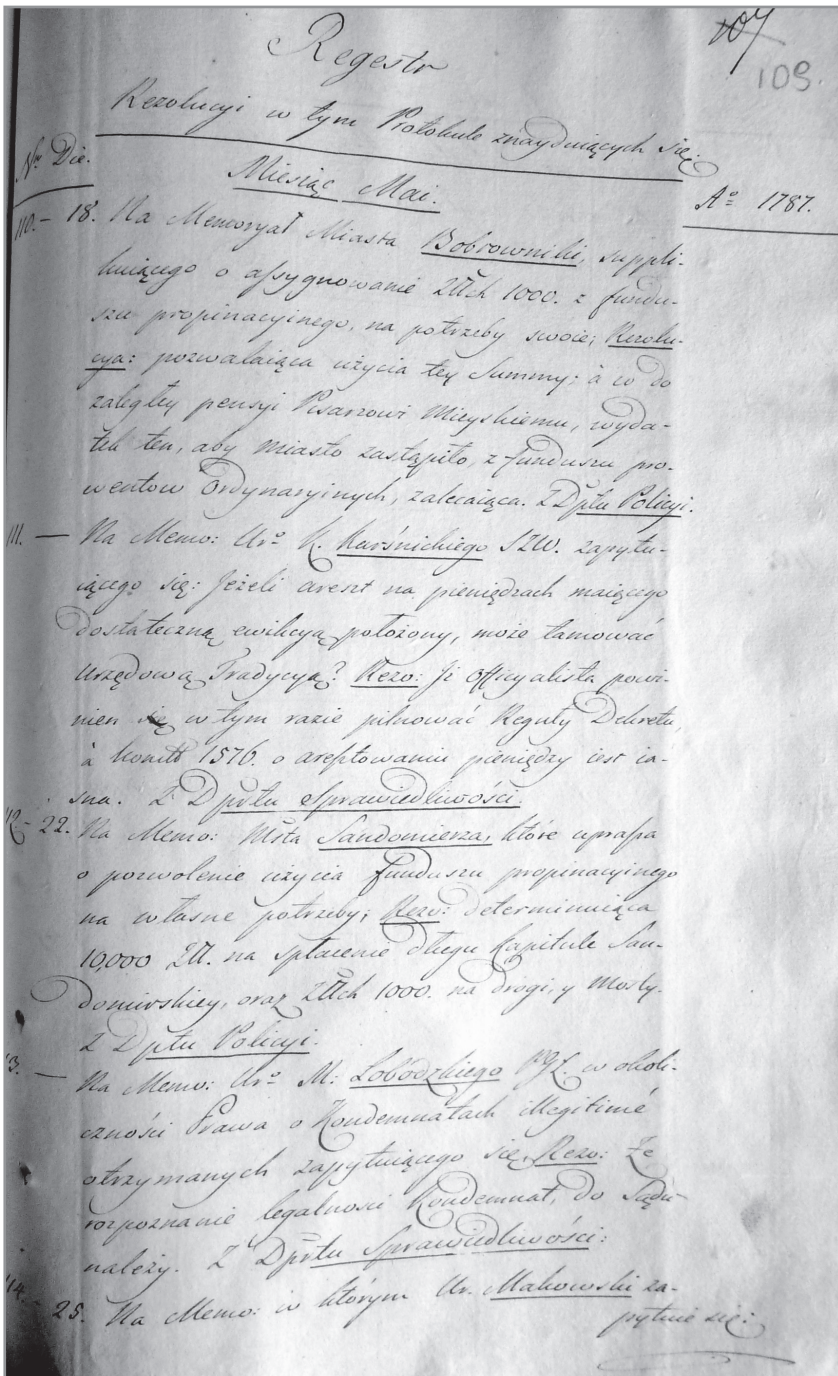 107
109.
Regestr
Rezolucyi w tym Protokule znayduiących się.
Nr. Die.
Miesiąc Mai.
Aº 1787.
110. – 18. Na Memoryał Miasta Bobrowniki, suppli-
kuiącego o assygnowanie Złłch 1000. z fundu-
szu propinacyinego, na potrzeby swoie; Rezolu-
cya: pozwalaiąca użycia tey Summy: à co do
zaległey pensyi Pisarzowi Mieyskiemu, wyda-
tek ten, aby miasto zastąpiło, z funduszu pro-
wentow Ordynaryinych, zalecaiąca. Z Dptu Policyi.
111. — Na Memo: Urº K. Karśnickiego SZW. zapytu-
iącego się: Jeżeli areszt na pieniądzach maiącego
dostateczną ewikcyą położony, może tamować
Urzędową Tradycyą? Rezo: Jż Officyalista powi-
nien się w tym razie pilnować Reguły Dekretu,
à Konstt 1576. o aresztowaniu pieniędzy iest ia-
sna. Z Dprtu Sprawiedliwości.
112. – 22. Na Memo: Msta Sandomierza, które uprasza
o pozwolenie użycia funduszu propinacyinego
na własne potrzeby; Rezo: determinuiąca
10,000 Złł. na spłacenie długu Kapitule San-
domirskiey, oraz Złłch 1000. na drogi, y Mosty.
Z Dptu Policyi.
13. — Na Memo: Urº M: Łobodzkiego PJZ. w okoli-
czności Prawa o Kondemnatach illegitimé
otrzymanych zapytuiącego się, Rezo: Że
rozpoznanie legalności Kondemnat, do Sądu
należy. Z Dprtu Sprawiedliwości:
14. – 25. Na Memo: w którym Ur. Makowski za-
pytuie się: